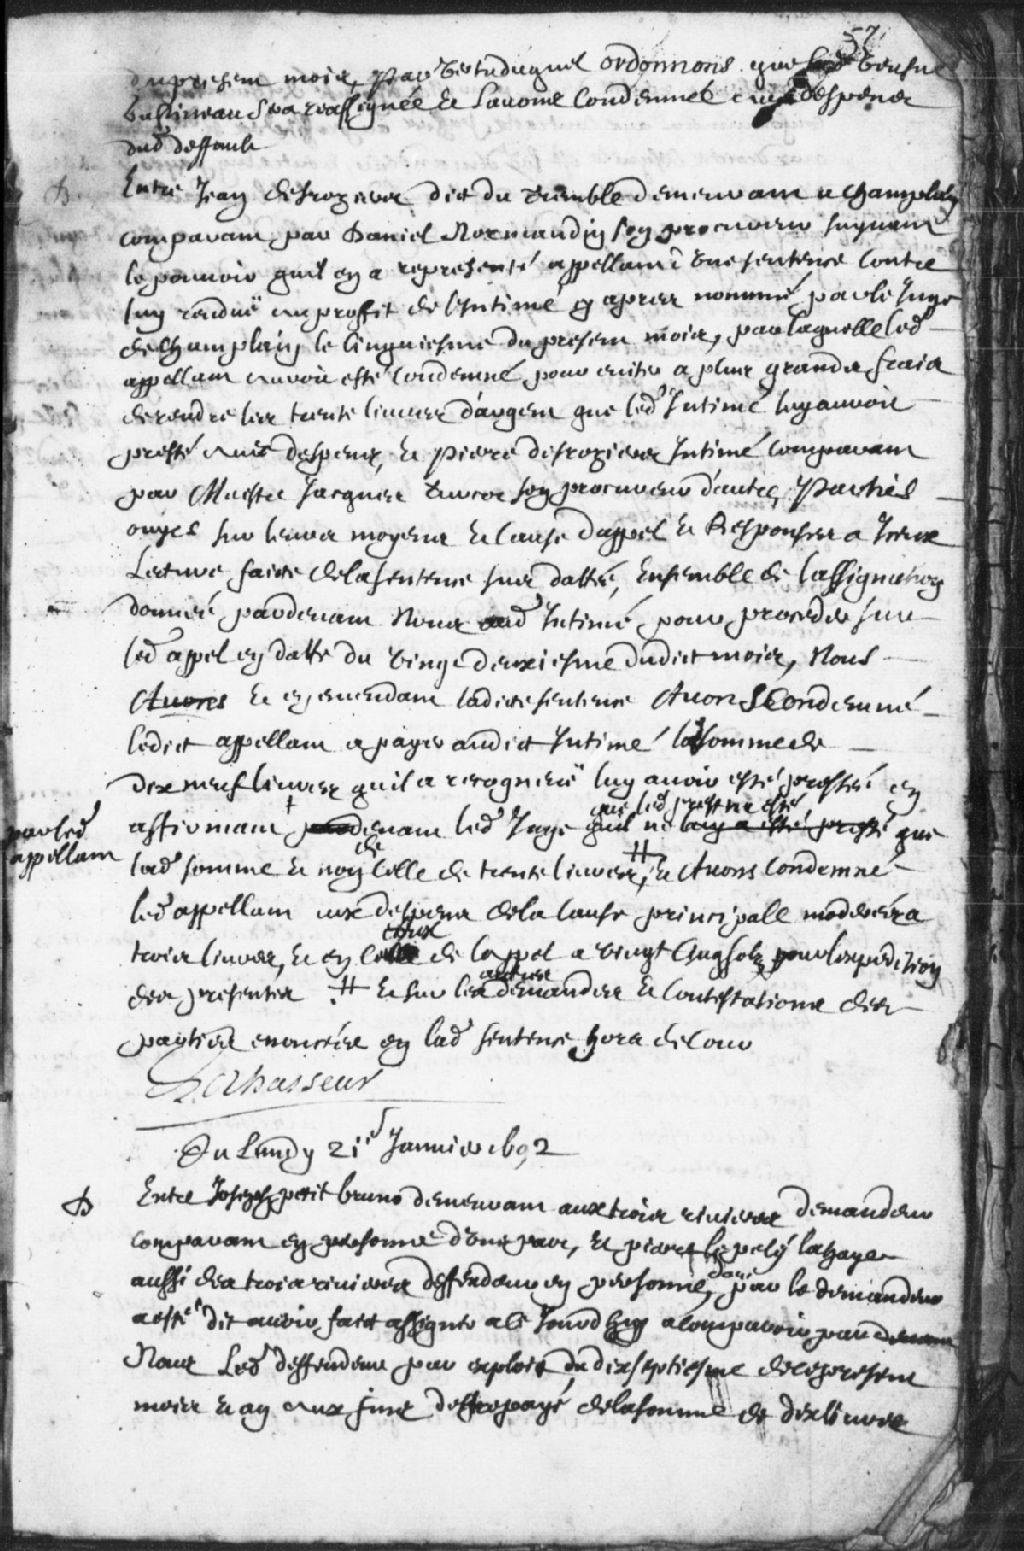 57
du present mois, Par vertu duquel ordonnons que lad veufve
Babineau sera reassignée et l'avons Condemnée aux despens
dud deffault
Entre Jean desrosiers dict du tremble demeurant a Champlain
comparant par Daniel Normandin son procureur suyvant
le pouvoir quil en a representé appellant d'une sentence Contre
luy rendüe au proffit de l'Intimé cy apres nommé par le Juge
de Champlain le Cinquiesme du present mois, par laquelle led
appellant auroit esté Condemné pour eviter a plus grands fraix
de rendre les trente livres d'argent que led Intimé luy avoit
presté avec despens, et Pierre desrosiers Intimé comparant
par Maistre Jacques son procureur d'autre, Parties
ouyes sur leurs moyens et Cause d'appel et Responses a Iceux
Lecture faicte de la sentence sus dattée, Ensemble de l'assignation
donnée pardevant Nous aud Intimé pour proceder sur
led appel en datte du vingt deuxiesme dudict mois, Nous
Avons et en emendant ladicte sentence Avons Condemné
ledict appellant a payer audict Intimé la somme de
dix neuf livres quil a recogneüe luy avoir esté prestée en
affirmant pardevant led Juge quil que led prest na esté ne luy a esté presté que
par led
appellant
lad somme et non de Celle de trente livres, # et Avons Condemné
led appellant aux despens de la Cause principalle moderéz a
trois livres, et en ceux de l'appel a vingt Cinq solz pour l'expedition
des presentes # et sur les autres demandes et Contestations des
parties enoncées en lad sentence hors de Cour
Lechasseur
Du Lundy 21e Janvier 1692
Entre Joseph petit bruno demeurant aux trois rivieres demandeur
comparant en personne d'une part, et pierre lepelé lahaye
aussi des trois rivieres deffendeur en personne, dautre par le demandeur
a esté dit avoir fait assigner a ce Jourdhuy a comparoir pardevant
Nous Led deffendeur par exploit du dixseptiesme de ce present
mois et an aux fins destre payé de la somme de dix livres